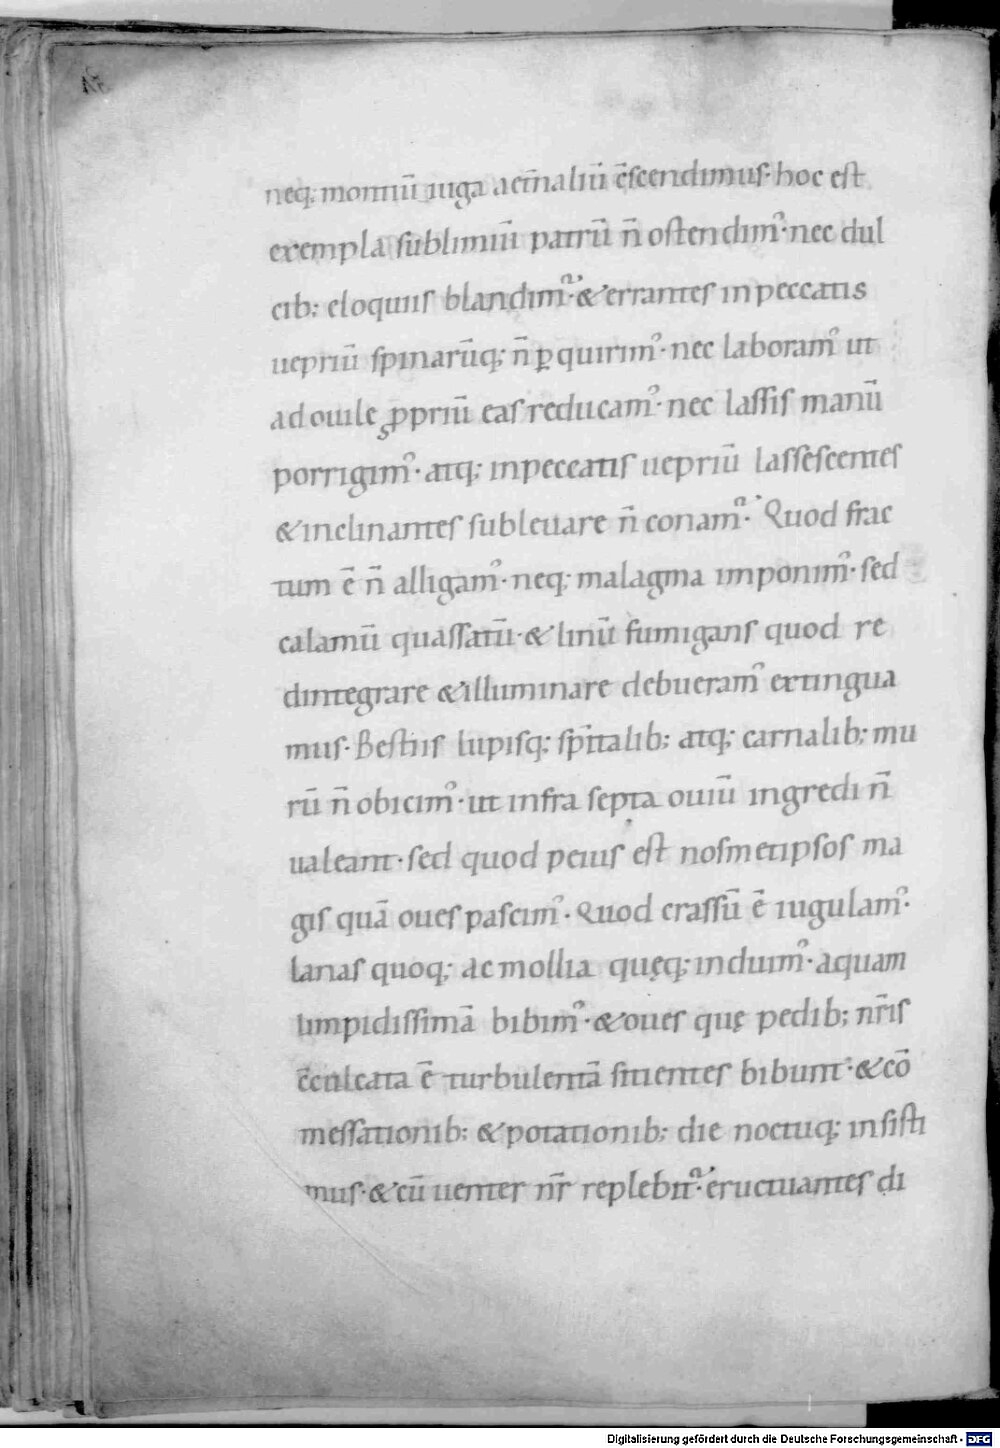 neq; montiū iuga aet̄naliū c̄scendimus· hoc est
exempla sublimiū patrū n̄ ostendim᾿· nec dul
cib; eloquiis blandim᾿· & errantes in peccatis
uepriū spinarūq; n̄ ꝑquirim᾿· nec laboram᾿ ut
ad ouile ꝓpriū eas reducam᾿· nec lassis manū
porrigim᾿· atq; in peccatis uepriū lassescentes
& inclinantes subleuare n̄ conam᾿· Quod frac
tum ē n̄ alligam᾿· neq; malagma imponim᾿· sed
calamū quassatū· & linū fumigans quod re
dintegrare & illuminare debueram᾿ extingua
mus· Bestiis lupisq; sp̄italib; atq; carnalib; mu
rū n̄ obicim᾿· ut infra septa ouiū ingredi n̄
ualeant· sed quod peius est nosmetipsos ma
gis quā oues pascim᾿· Quod crassū ē iugulam᾿·
lanas quoq; ac mollia quęq; induim᾿· aquam
limpidissimā bibim᾿· & oues quę pedib; nr̄is
c̄culcata ē turbulentā sitientes bibunt· & cō
messationib; & potationib; die noctuq; insisti
mus· & cū uenter nr̄ replebit᾿· eructuantes di
Digitalisierung gefördert durch die Deutsche Forschungsgemeinschaft - DFG